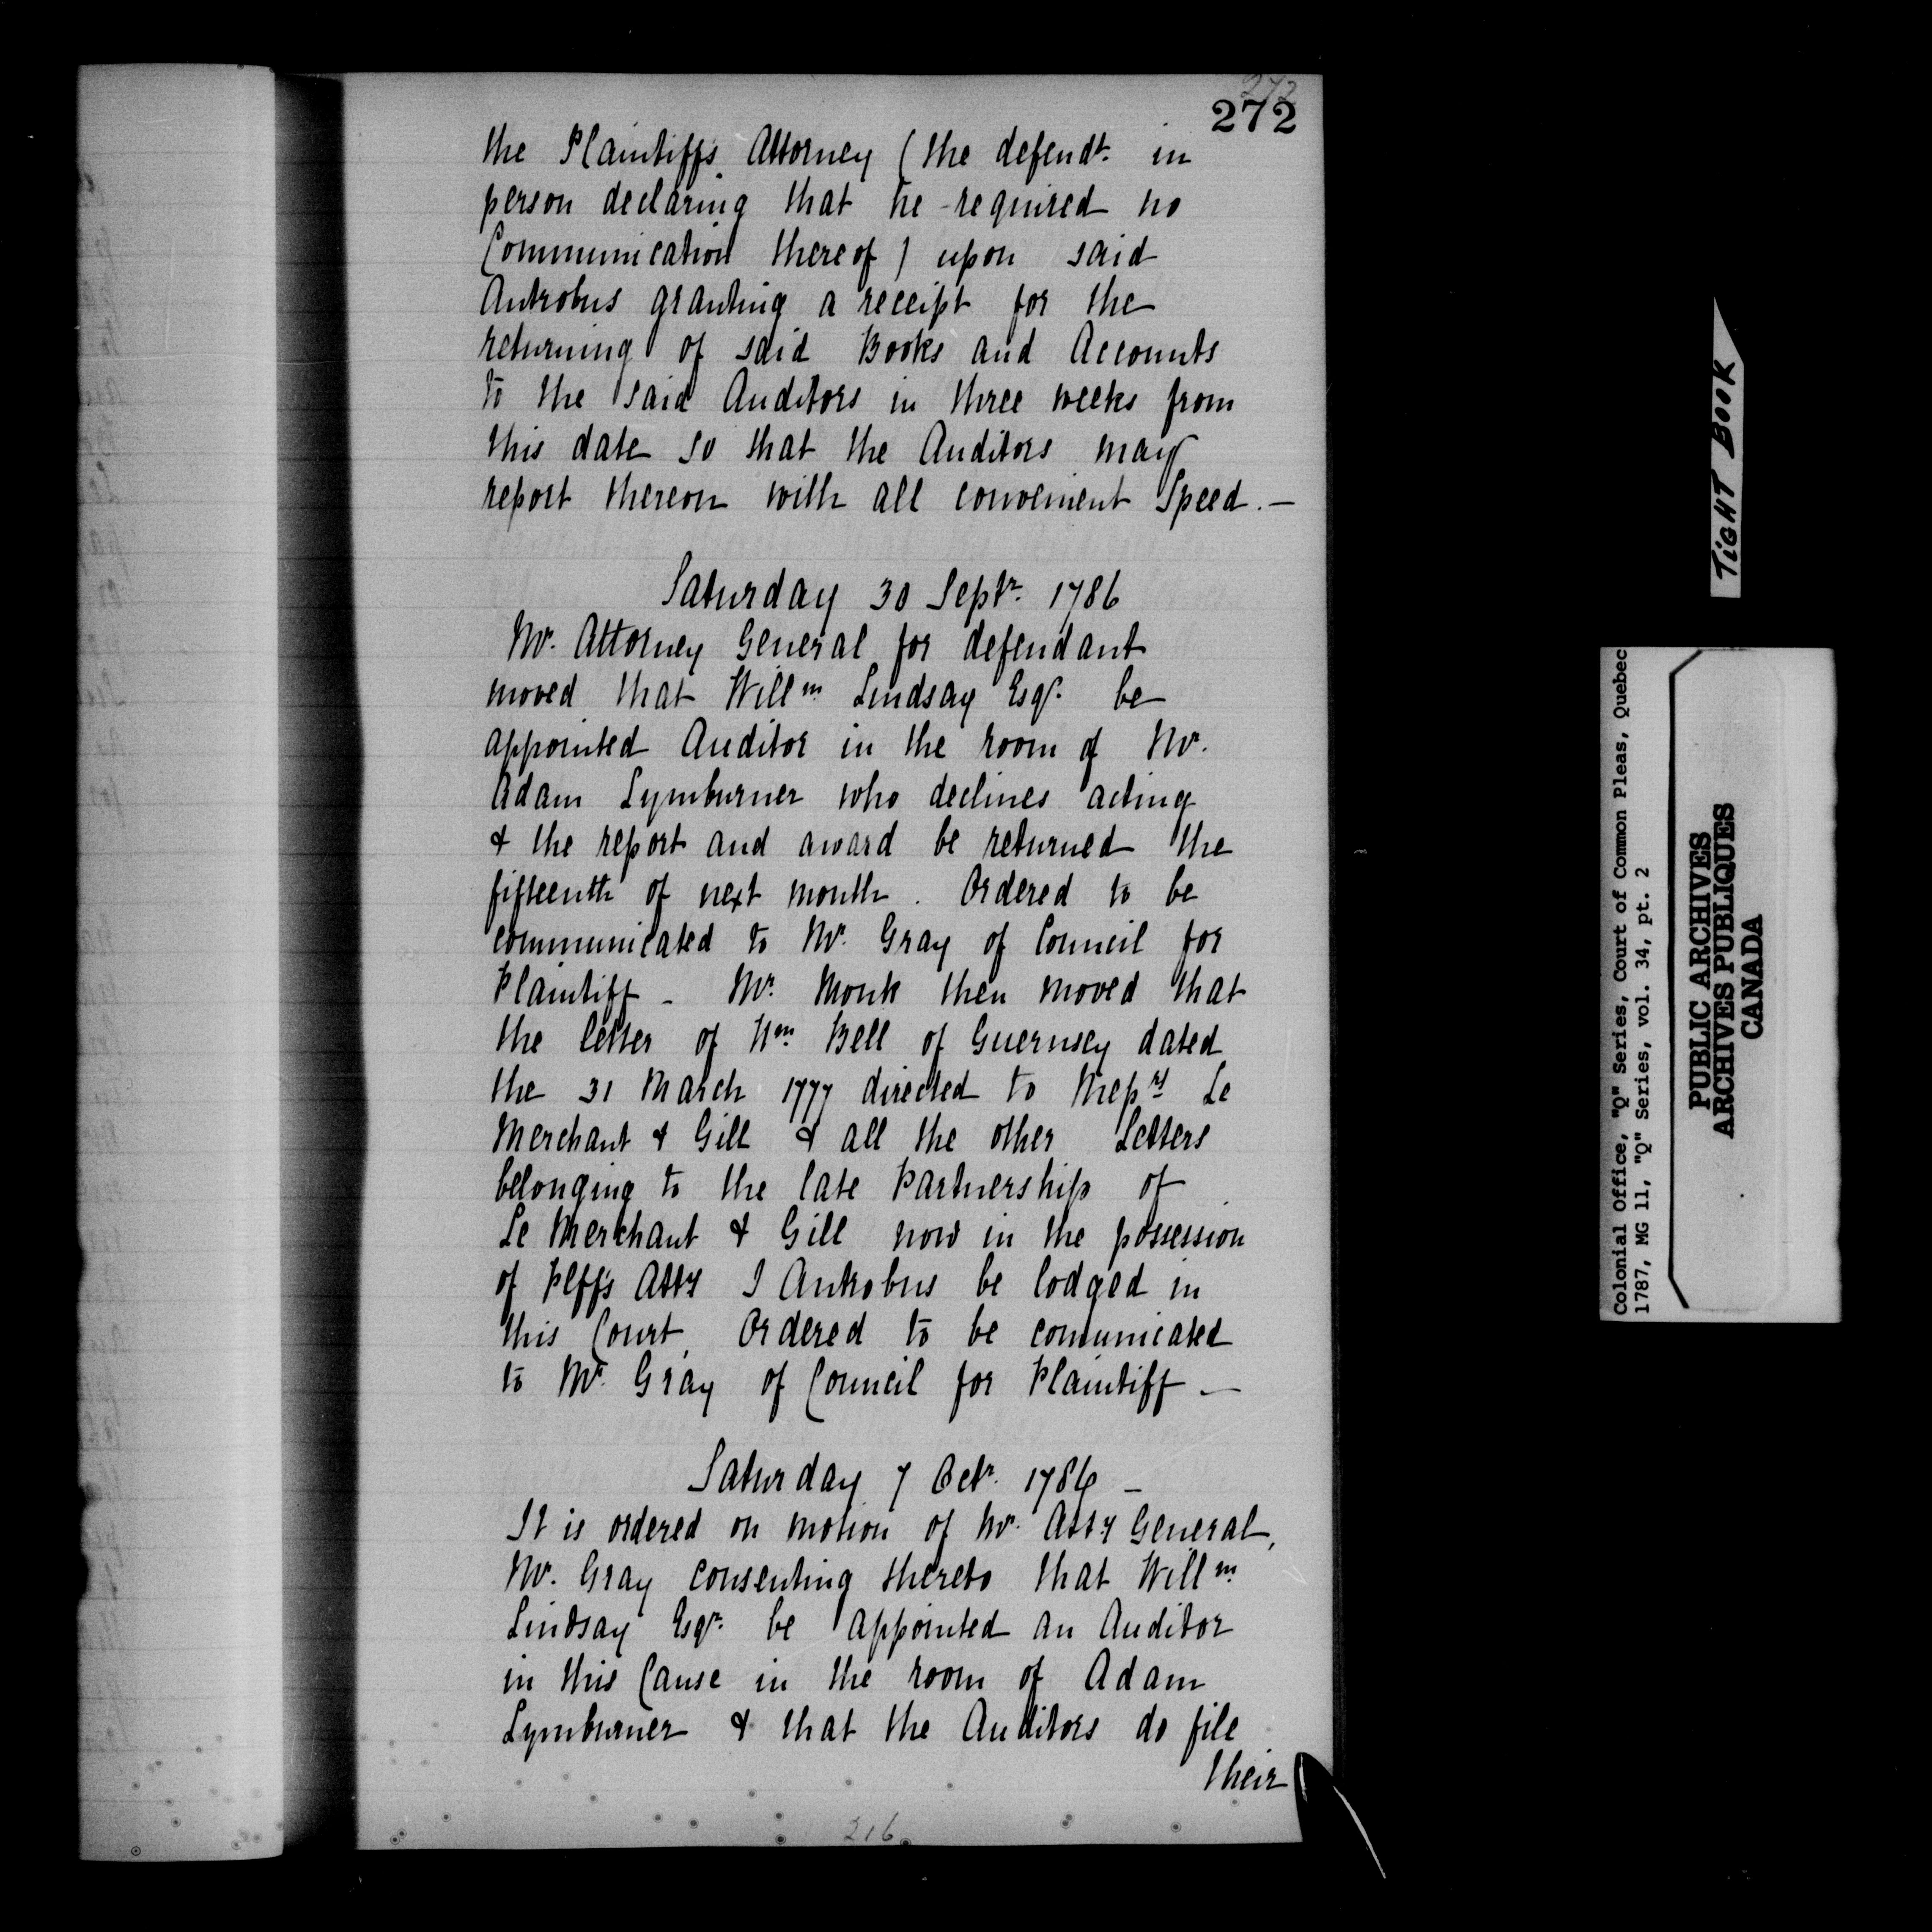 272
272
the Plaintiff's Attorney (the defendt. in
person declaring that he required no
Communication thereof) upon said
Antrobus granting a receipt for the
returning of said Books and Accounts
to the said Auditors in three weeks from
this date so that the Auditors may
report thereon with all convenient Speed. —
Saturday 30 Septr. 1786
Mr. Attorney General for defendant
moved that Willm Lindsay Esqr. be
appointed Auditor in the room of Mr.
Adam Lymburner who declines acting
& the report and award be returned the
fifteenth of next month. Ordered to be
communicated to Mr. Gray of Council for
Plaintiff - Mr. Monk then moved that
the letter of Wm. Bell of Guernsey dated
the 31 March 1777 directed to Messrs Le
Merchant & Gill & all the other Letters
belonging to the late Partnership of
Le Merchant & Gill now in the possession
of Plff's Atty J Antrobus be lodged in
this Court. Ordered to be comunicated
to Mr. Gray of Council for Plaintiff —
Saturday 7 Octr. 1786 —
It is ordered on motion of Mr. Atty General,
Mr. Gray consenting thereto that Willm
Lindsay Esqr. be appointed an Auditor
in this Cause in the room of Adam
Lymburner & that the Auditors do file
their
216
TIGHT BOOK
Colonial Office, "Q" Series, Court of Common Pleas, Quebec
1787, MG 11, "Q" Series, vol. 34, pt. 2
PUBLIC ARCHIVES
ARCHIVES PUBLIQUES
CANADA